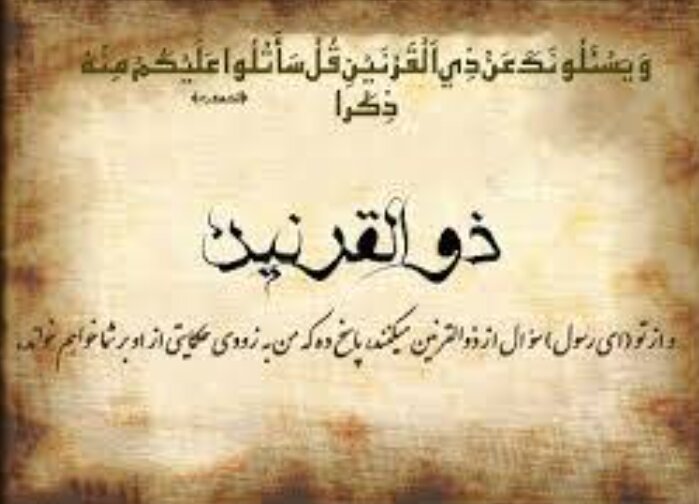 وَيَسْئَلُونَكَ عَنْ ذِي الْقَرْنَيْنِ قُلْ سَأَتْلُوا عَلَيْكُمْ مِنْهُ
ذِكْرا
ذوالقرنین
و از تو (ای رسول) سؤال از ذوالقرنین میکنند، پاخ ده که من به زودی حکایتی از او بر شما خواهم خواند.